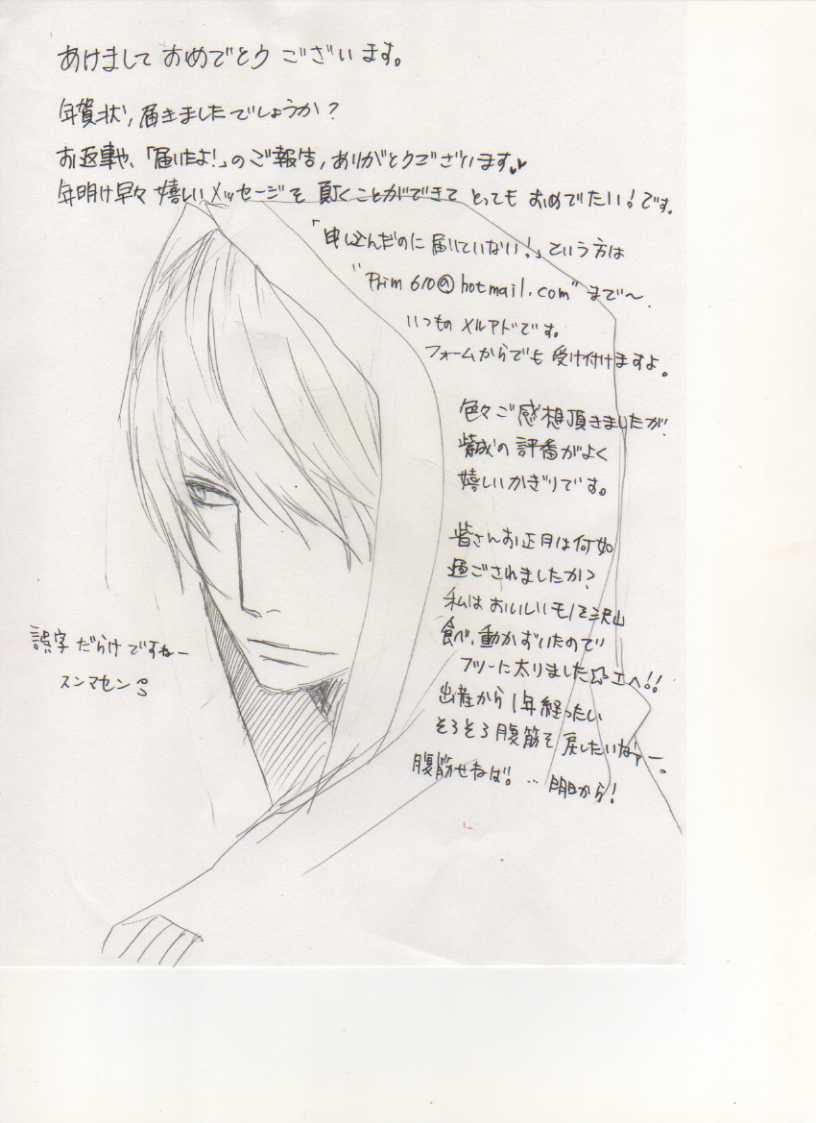 あけまして おめでとう ございます。
年賀状、届きましたでしょうか?
お返事や、「届いたよ!」のご報告、ありがとうございます♥♥
年明け早々 嬉しいメッセージを 頂くことができて とっても おめでたい!です。
「申し込んだのに 届いていない!」という方は
"Prim610@hotmail.com" まで〜.
いつもの メルアドです。
フォームからでも 受け付けますよ。
色々ご感想頂きましたが
紫誠の 評番がよく
嬉しいかぎりです。
皆さんお正月は何如
過ごされましたか?
私は おいしいモノを沢山
食べ、動かずいたので
フツーに太りました エヘ!!
出産から 1年経ったい
そろそろ 腹筋を 戻したいなァー。
腹筋せねば。… 明日から!
誤字 だらけ ですねー
スンマセン